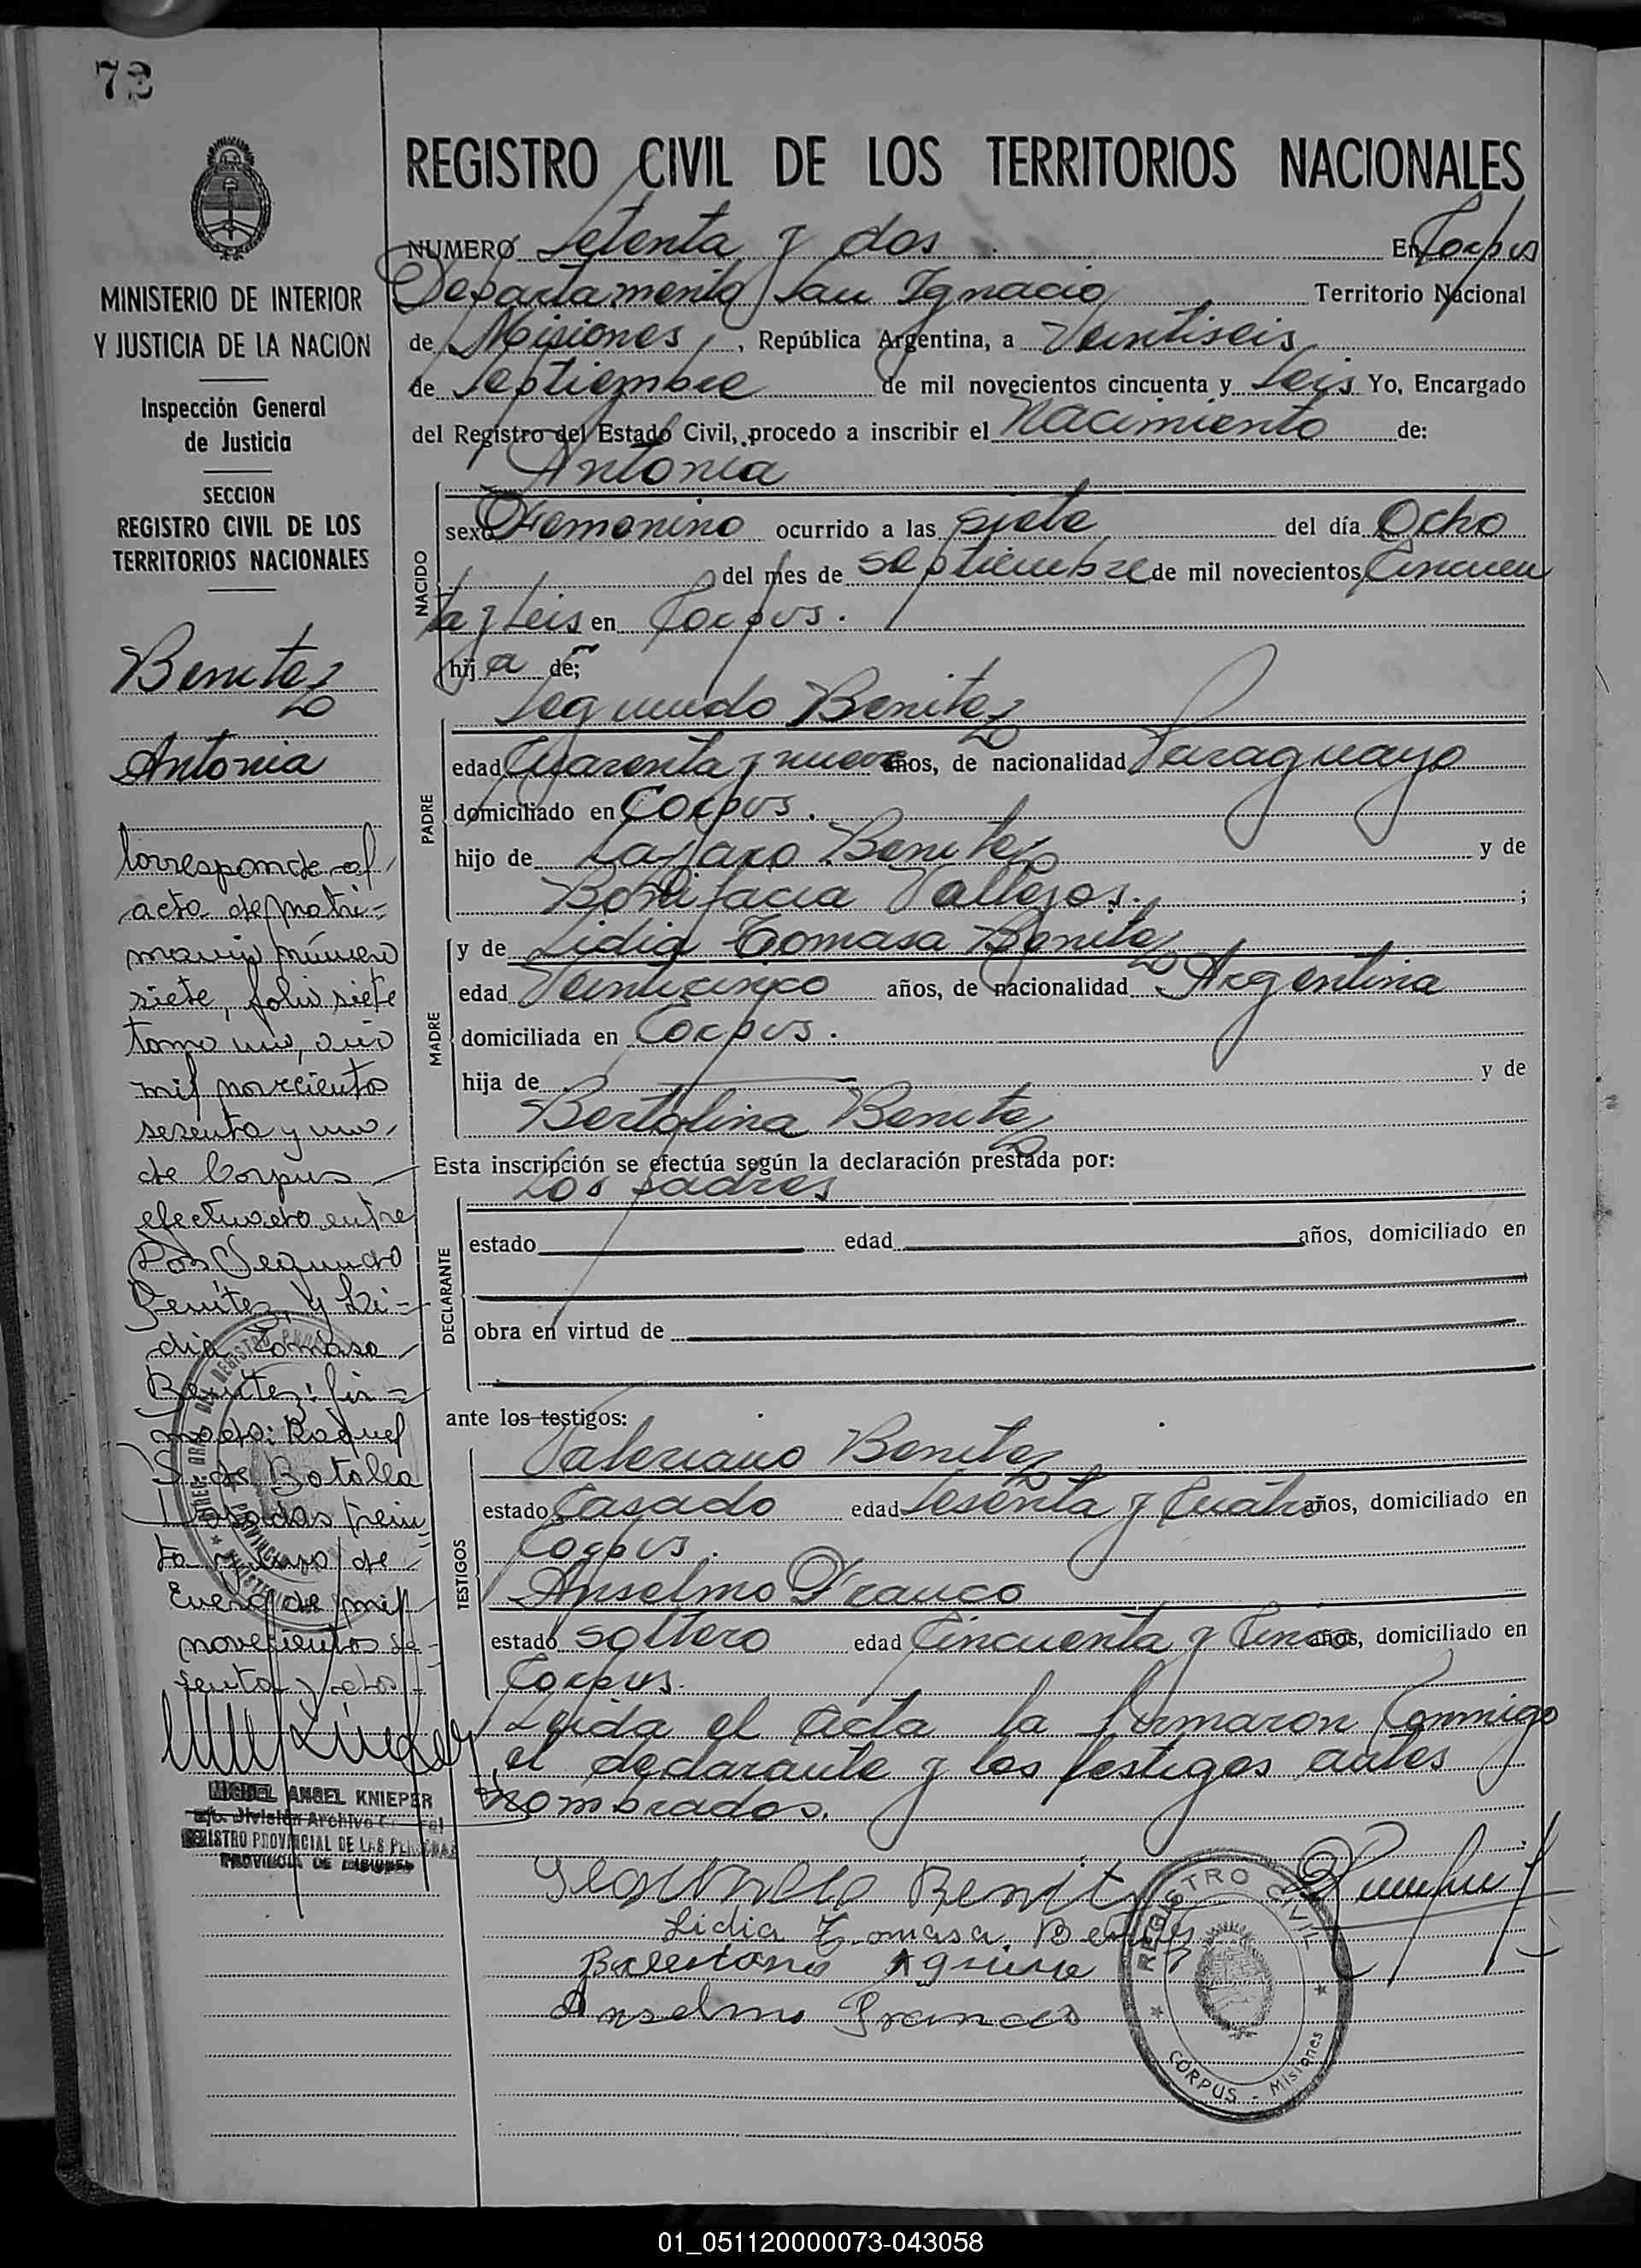 72
REGISTRO CIVIL DE LOS TERRITORIOS NACIONALES
NUMERO Setenta y dos En Corpus
Departamento San Ignacio Territorio Nacional
de Misiones, República Argentina, a Veintiseis
de Septiembre de mil novecientos cincuenta y seis Yo, Encargado
del Registro del Estado Civil, procedo a inscribir el Nacimiento de:
Antonia
NACIDO
sexo Femenino ocurrido a las siete del día Ocho
del mes de septiembre de mil novecientos Cincuen
ta y seis en Corpus.
hija de;
PADRE
Segundo Benitez
edad Cuarenta y nueve años, de nacionalidad Paraguayo
domiciliado en Corpus.
hijo de Lazaro Benitez y de
Bonifacia Vallejos. ;
MADRE
y de Lidia Tomasa Benitez
edad Veinticinco años, de nacionalidad Argentina
domiciliada en Corpus.
hija de y de
Bertolina Benitez
Esta inscripción se efectúa según la declaración prestada por:
Los padres
DECLARANTE
estado edad años, domiciliado en
obra en virtud de
ante los testigos:
TESTIGOS
Valeriano Benitez
estado Casado edad Sesenta y Cuatro años, domiciliado en
Corpus.
Anselmo Franco
estado soltero edad Cincuenta y Cinco años, domiciliado en
Corpus.
Leida el acta la firmaron Conmigo
el declarante y los testigos antes
nombrados.
Segundo Benitez
Lidia Tomasa Benitez
Aguirre
Anselmo Franco
REGISTRO CIVIL
CORPUS - Misiones
MINISTERIO DE INTERIOR
Y JUSTICIA DE LA NACION
Inspección General
de Justicia
SECCION
REGISTRO CIVIL DE LOS
TERRITORIOS NACIONALES
Benitez
Antonia
Corresponde al
acta de matri-
monio número
siete, folio siete
tomo uno, año
mil novecientos
sesenta y uno,
de Corpus
efectuado entre
Don Segundo
Benítez, y Li-
dia Tomasa
Benítez: fir-
mado: Raquel
S. de Botalla
Posadas trein
ta y uno de
Enero de mil
novecientos se-
senta y dos
MIGUEL ANGEL KNIEPER
a/c. División Archivo General
REGISTRO PROVINCIAL DE LAS PERSONAS
PROVINCIA DE MISIONES
01_051120000073-043058